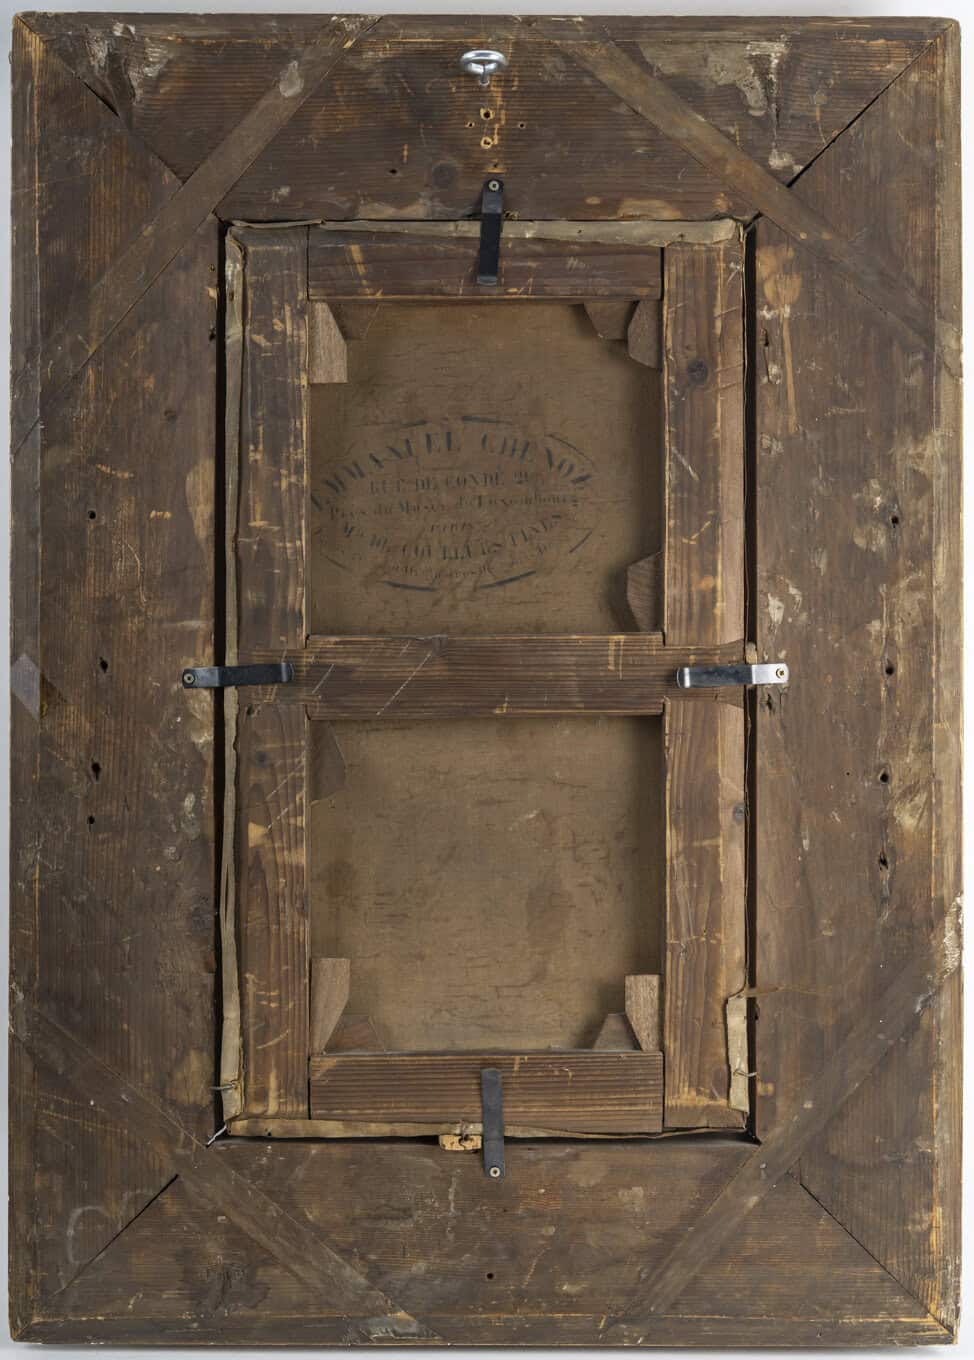 EMMANUEL CHENOZ
RUE DE CONDÉ 26
Près du Musée du Luxembourg
PARIS
Md DE COULEURS FINES